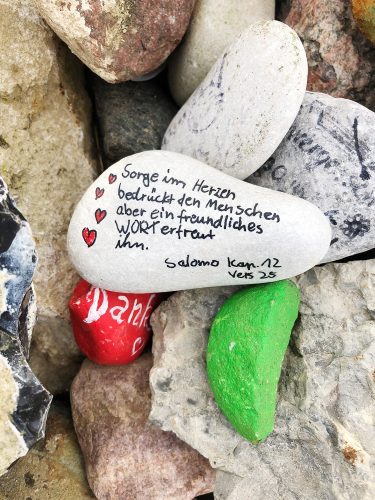 Sorge im Herzen
bedrückt den Menschen
aber ein freundliches
WORT erfreut
ihn.
Salomo Kap. 12
Vers 25
Dank